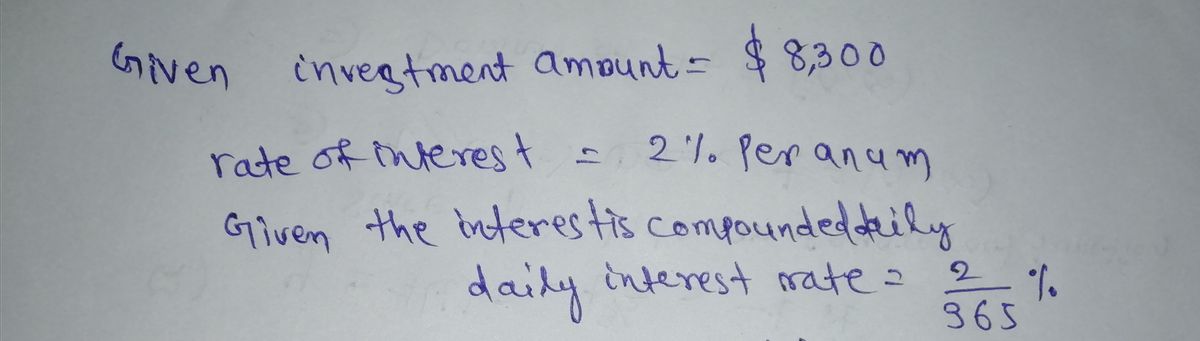 Given investment amount = $ 8,300
rate of interest = 2% Per anum
Given the interest is compounded daily
daily interest rate = 2/365 %